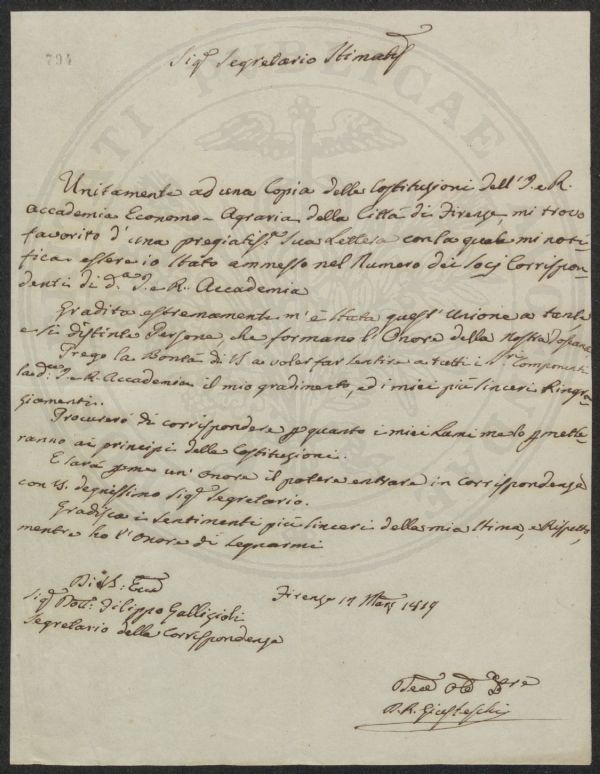 794
Sig.r Segretario Stimatis.o
Unitamente ad una Copia delle Costituzioni dell'I. e R.
Accademia Economo-Agraria della Città di Firenze, mi trovo
favorito d'una pregiatis.a Sua Lettera con la quale mi noti-
fica essere io stato ammesso nel Numero dei Socj Corrispon-
denti di d.a I. e R. Accademia
Gradita estremamente m'è stata quest'Unione a tante
e sì distinte Persone, che formano l'Onore della nostra Toscana
Prego la Bontà di VS. a voler far sentire a tutti i SS.ri Componenti
la d.a I. e R. Accademia il mio gradimento, ed i miei più sinceri Ringra-
ziamenti.
Procurerò di corrispondere p quanto i miei Lumi me lo pmette-
ranno ai principj delle Costituzioni.
E sarà p me un'onore il potere entrare in corrispondenza
con VS. degnissimo Sig.r Segretario.
Gradisca i sentimenti più sinceri della mia stima, e Rispetto,
mentre ho l'onore di segnarmi
Di VS: Ecc.a
Sig.r Dott.r Filippo Gallizioli
Segretario della Corrispondenza
Firenze 17 Marz. 1819
Dev.o Obb.o S.re
RATI PUBLICAE